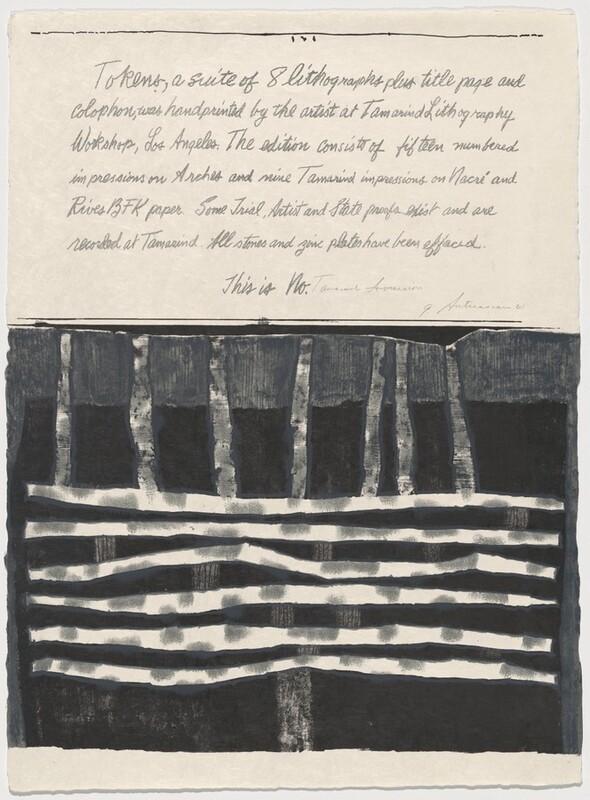 Tokens, a suite of 8 lithographs plus title page and
colophon, was handprinted by the artist at Tamarind Lithography
Workshop, Los Angeles. The edition consists of fifteen numbered
impressions on Arches and nine Tamarind impressions on Nacré and
Rives BFK paper. Some Trial, Artist and State proofs exist and are
recorded at Tamarind. All stones and zinc plates have been effaced.
This is No. Tamarind Impression
g Antreasian